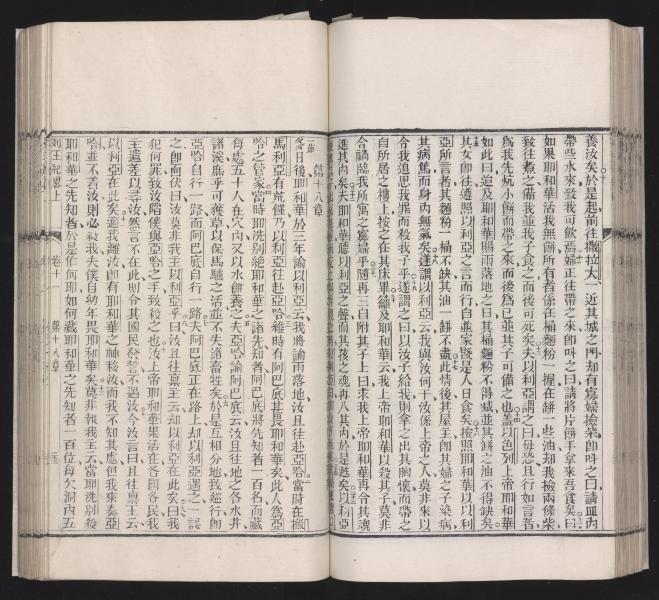 養汝矣於是起而往撒拉大一近其城之門却有寡婦撿柴卽呌之曰請皿內
帶些水來致我可飲焉婦正往帶之來卽呌之曰請將片餅手拿來吾食矣曰
如果耶和華活我無餅所有者係在桶麵粉一握在缾一些油却我撿兩條柴
致往煮之備我並我子食之而後可死矣夫以利亞謂之曰勿恐且行如言者
爲我先炕小餅而帶之來而後爲已並其子可備之也蓋以色列上帝耶和華
如此曰這及耶和華賜雨落地之日其桶麵粉不得減並其缾之油不得缺矣
其女卽往遵照以利亞之言而行自並家曁是人日食矣按照耶和華以以利
亞所言者其麵粉一桶不缺其油一缾不盡此情後其屋主卽其婦之子染病
其病篤而身內無氣矣遂謂以利亞云我與汝何干汝係上帝之人莫非來以
令我追思我罪而殺我子乎遂謂之曰以汝子給我則拿之出其胸懷而帶之
自所居之樓上按之在其床畢籲及耶和華云我上帝耶和華以殺其子莫非
令禍臨我所寓之寡婦乎隨再三自附其子上曰求我上帝耶和華再令其魂
進其內矣夫耶和華聽以利亞之聲而其孩之魂再入其內於是甦矣以利亞
第十八章
多日後耶和華於三年諭以利亞云我將諭雨落地汝且往赴亞哈當時在撒
馬利亞有荒饉乃以利亞往赴亞哈維時有阿巴底甚畏耶和華矣此人爲亞
哈之管家當時耶洗別絕耶和華之諸先知者阿巴底將先知者一百名而藏
每處五十人在穴內又以水餅養之夫亞哈諭阿巴底云汝且往地之各水井
諸溪處乎可獲草以保馬騾之活並不失諸畜牲矣於是互相分地致經行卽
亞哈自行一路而阿巴底自行一路夫阿巴底正在路上却以利亞遇之一認
之卽俯伏曰汝莫非我主以利亞乎曰汝且往禀主云却以利亞在此矣曰我
犯何罪致汝陷僕與亞哈之手致殺之也汝上帝耶和華果活在各國各民我
主遣差以尋汝然言不在此則令其國民發誓言不遇汝今汝言曰且往禀主云
以利亞在此矣適我離汝卽有耶和華之神移汝而我不知其處但我來奏亞
哈並不着汝則必殺我夫僕自幼年畏耶和華矣莫非報我主云當耶洗別殺
耶和華之先知者於是作何耶如何藏耶和華之先知者一百位每欠洞內五
列王紀畧上 卷十一 第十八章